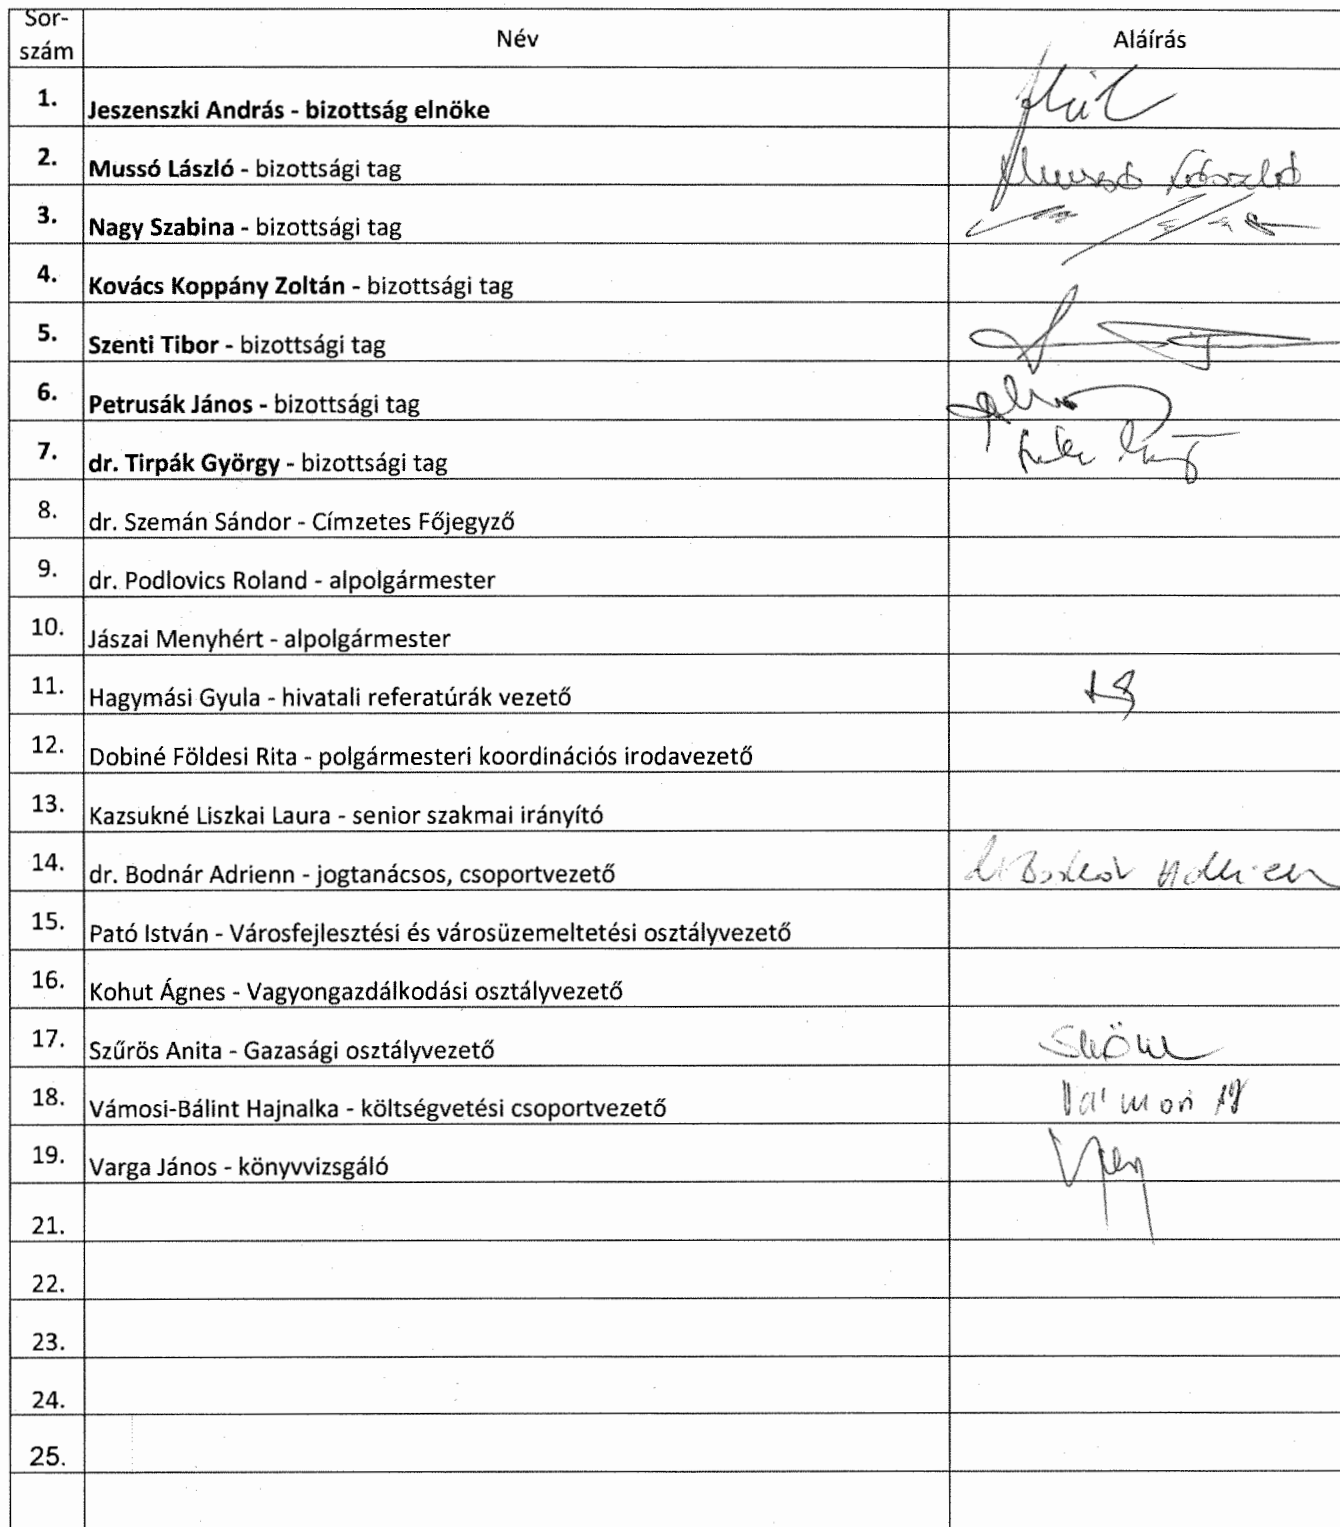 Sor-
szám Név Aláírás
1. Jeszenszki András - bizottság elnöke
2. Mussó László - bizottsági tag Mussó László
3. Nagy Szabina - bizottsági tag
4. Kovács Koppány Zoltán - bizottsági tag
5. Szenti Tibor - bizottsági tag
6. Petrusák János - bizottsági tag
7. dr. Tirpák György - bizottsági tag
8. dr. Szemán Sándor - Címzetes Főjegyző
9. dr. Podlovics Roland - alpolgármester
10. Jászai Menyhért - alpolgármester
11. Hagymási Gyula - hivatali referatúrák vezető
12. Dobiné Földesi Rita - polgármesteri koordinációs irodavezető
13. Kazsukné Liszkai Laura - senior szakmai irányító
14. dr. Bodnár Adrienn - jogtanácsos, csoportvezető dr Bodnár Adrienn
15. Pató István - Városfejlesztési és városüzemeltetési osztályvezető
16. Kohut Ágnes - Vagyongazdálkodási osztályvezető
17. Szűrös Anita - Gazasági osztályvezető
18. Vámosi-Bálint Hajnalka - költségvetési csoportvezető
19. Varga János - könyvvizsgáló
21.
22.
23.
24.
25.